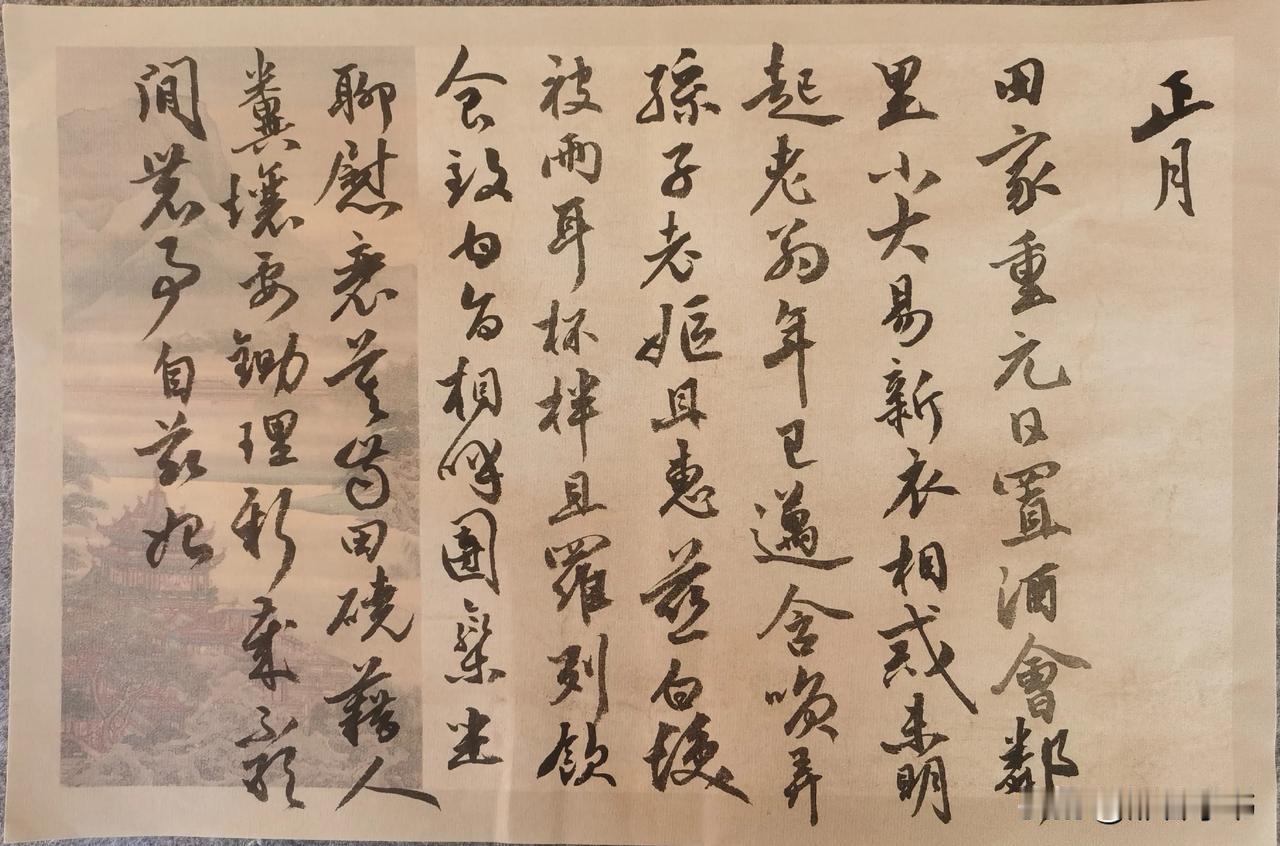 正月
田家重元日置酒會鄰
里小大易新衣相戒未明
起老翁年已邁含咲弄
孫子老嫗且惠慈白髮
被兩耳杯柈且羅列飲
食致甘旨相呼團欒坐
聊慰衰莫齒田磽藉人
糞壤要鋤理新歲不敢
閒農事自兹始